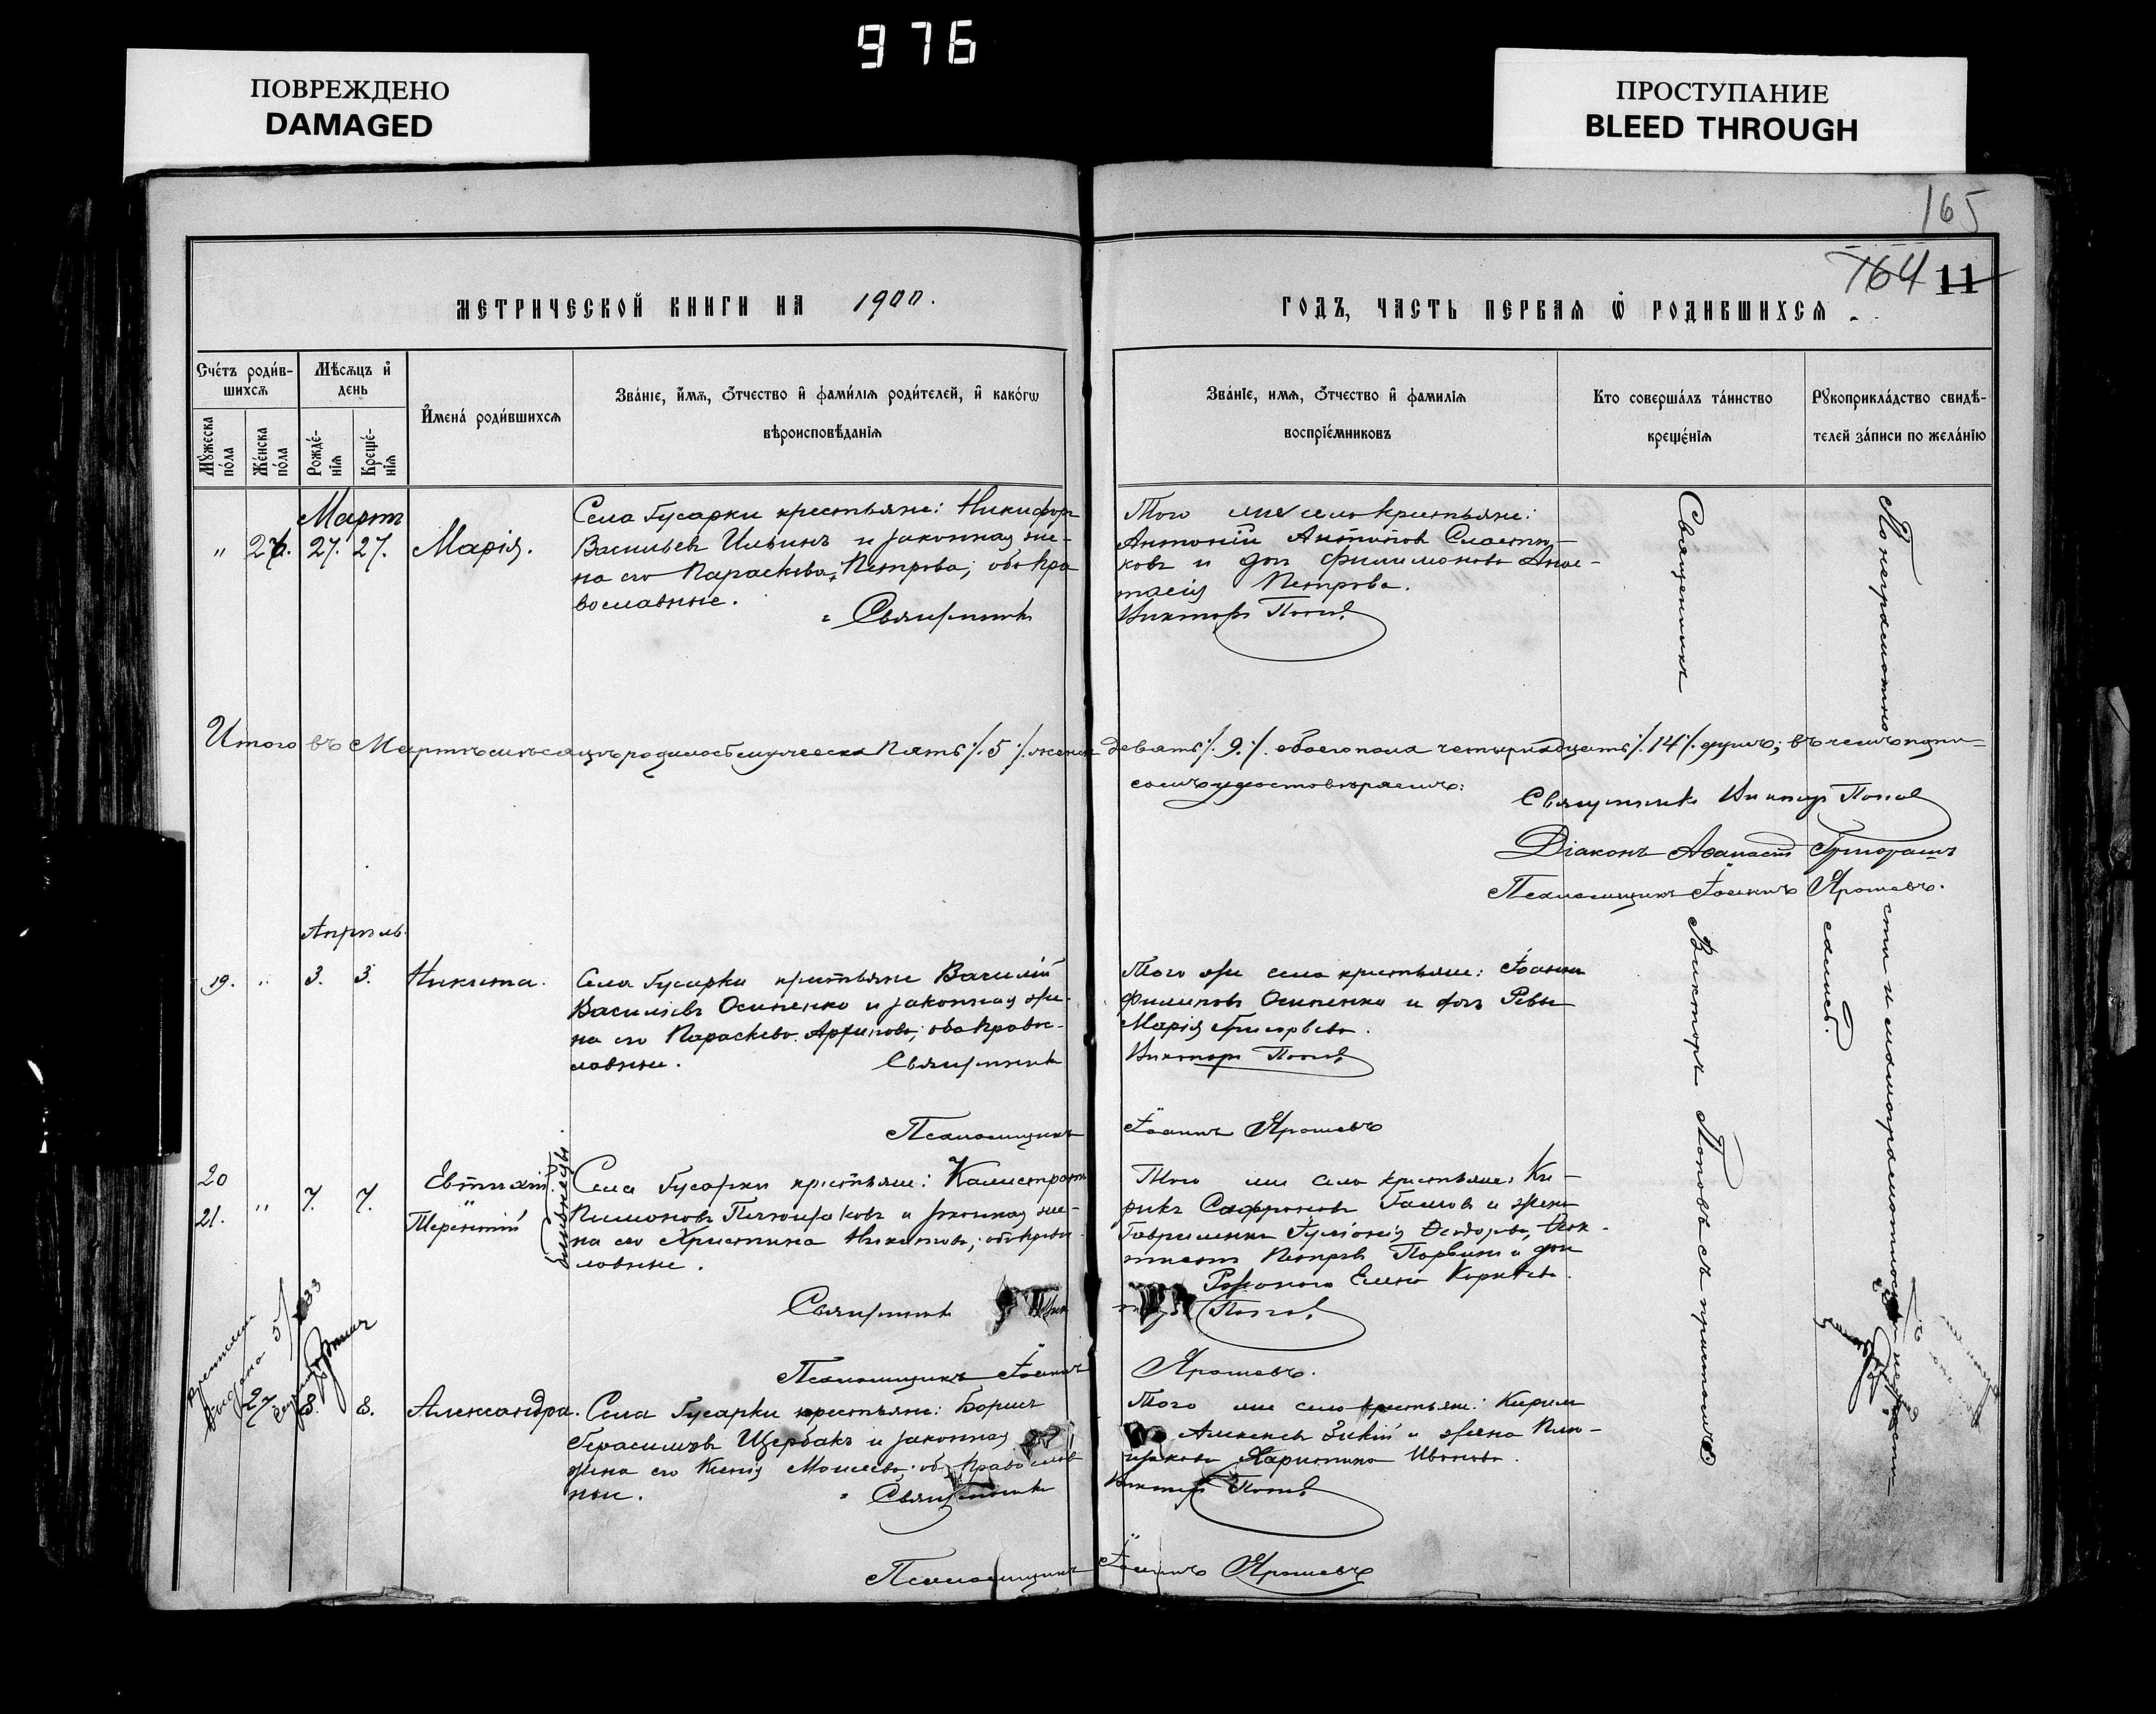 976
ПОВРЕЖДЕНО
DAMAGED
ПРОСТУПАНИЕ
BLEED THROUGH
165
164 11
МЕТРИЧЕСКОЙ КНИГИ НА 1900.
ГОДЪ, ЧАСТЬ ПЕРВАЯ Ѿ РОДИВШИХСЯ
Счетъ родив-
шихся
Мѣсяцъ и
день
Мужеска
пола
Женска
пола
Рожде-
нія
Креще-
нія
Имена родившихся
Званіе, имя, отчество и фамилія родителей, и какогѡ
вѣроисповѣданія
Званіе, имя, отчество и фамилія
воспріемниковъ
Кто совершалъ таинство
крещенія
Рукоприкладство свидѣ-
телей записи по желанію
Мартъ
" 26. 27. 27. Марія.
Села Гусарки крестьяне: Никифоръ
Васильевъ Ильинъ и законная же-
на его Параскева Петрова; оба пра
вославные.
Священникъ
Того же села крестьяне:
Антоній Антоновъ Сластни-
ковъ и дочь Филимонова Анас-
тасія Петрова.
Викторъ Поповъ
Священникъ
По неграмотно
Итого въ Мартѣ мѣсяцѣ родилось мужеска пять /.5./ женска девять /.9./. обоего пола четырнадцать /.14./. душъ; въ чемъ подпи-
сомъ удостовѣряемъ:
Священникъ Викторъ Поповъ
Діаконъ Аѳанасій Григорашъ
Псаломщикъ Іоаннъ Ярошевъ.
Апрѣль.
19. " 3. 3. Никита.
Села Гусарки крестьяне Василій
Васильевъ Осипенко и законная же-
на его Параскева; оба правос-
лавные.
Священникъ
Того же села крестьяне: Іоаннъ
Филиповъ Осипенко и дочь Ревы
Марія Григорьева.
Викторъ Поповъ
Псаломщикъ Іоаннъ Ярошевъ
Викторъ Поповъ съ причтомъ
сти и малограмотности
20
21. " 7. 7.
Евтихій
Терентій
близнецы
Села Гусарки крестьяне: Калистратъ
Пимоновъ и законная же-
на его Христина Никитова; оба право
славные.
Священникъ
Того же села крестьяне: Ки-
рикъ Сафроновъ и жена
Гавриленки Ѳедорова,
Петровъ и дочь
Елена
Поповъ
Псаломщикъ Іоаннъ Ярошевъ.
Выдана
27 8. 8. Александра.
Села Гусарки крестьяне: Борисъ
Герасимовъ Щербакъ и законная
жена его Ксенія Моисеева; оба православ
ные.
Священникъ
Того же села крестьяне: Кирилъ
Алексеевъ Зикій и жена
Харитина Иванова.
Викторъ Поповъ
Псаломщикъ Іоаннъ Ярошевъ